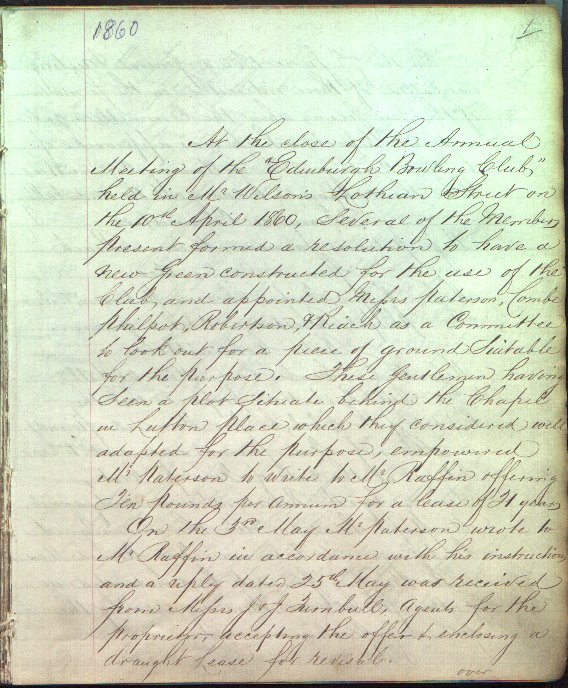 1860
1
At the close of the Annual
Meeting of the "Edinburgh Bowling Club,"
held in Mr Wilson's Lothian Street on
the 10th April 1860, Several of the Members
present formed a resolution to have a
new Green constructed for the use of the
Club, and appointed Messrs Paterson, Combe
Philpot, Robertson, & Riach as a Committee
to look out for a piece of ground Suitable
for the purpose. These Gentlemen having
Seen a plot Situate behind the Chapel
in Lutton Place which they considered well
adapted for the purpose, empowered
Mr Paterson to write to Mr Raffin offering
Ten Pounds per Annum for a lease of 21 years
On the 3rd May Mr Paterson wrote to
Mr Raffin in accordance with his instructions
and a reply dated 25th May was received
from Messrs J & J Turnbull, Agents for the
Proprietor accepting the offer & enclosing a
draught Lease for revisal.
over